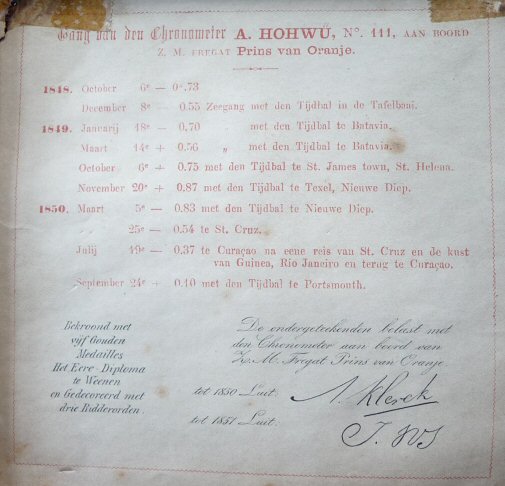 Gang van den Chronometer A. HOHWÜ, N°. 111, AAN BOORD
Z. M. FREGAT Prins van Oranje.
1848. October 6e — 0s.73
December 8e — 0.55 Zeegang met den Tijdbal in de Tafelbaai.
1849. Januarij 18e — 0.70 „ met den Tijdbal te Batavia.
Maart 14e + 0.56 „ met den Tijdbal te Batavia.
October 6e + 0.75 met den Tijdbal te St. James town, St. Helena.
November 20e + 0.87 met den Tijdbal te Texel, Nieuwe Diep.
1850. Maart 5e — 0.83 met den Tijdbal te Nieuwe Diep.
„ 25e — 0.54 te St. Cruz.
Julij 19e — 0.37 te Curaçao na eene reis van St. Cruz en de kust
van Guinea, Rio Janeiro en terug te Curaçao.
September 24e + 0.10 met den Tijdbal te Portsmouth.
Bekroond met
vijf Gouden
Medailles
Het Eere-Diploma
te Weenen
en Gedecoreerd met
drie Ridderorden.
De ondergeteekenden belast met
den Chronometer aan boord van
Zr. M. Fregat Prins van Oranje.
tot 1850 Luit. A. Klerck
tot 1851 Luit.